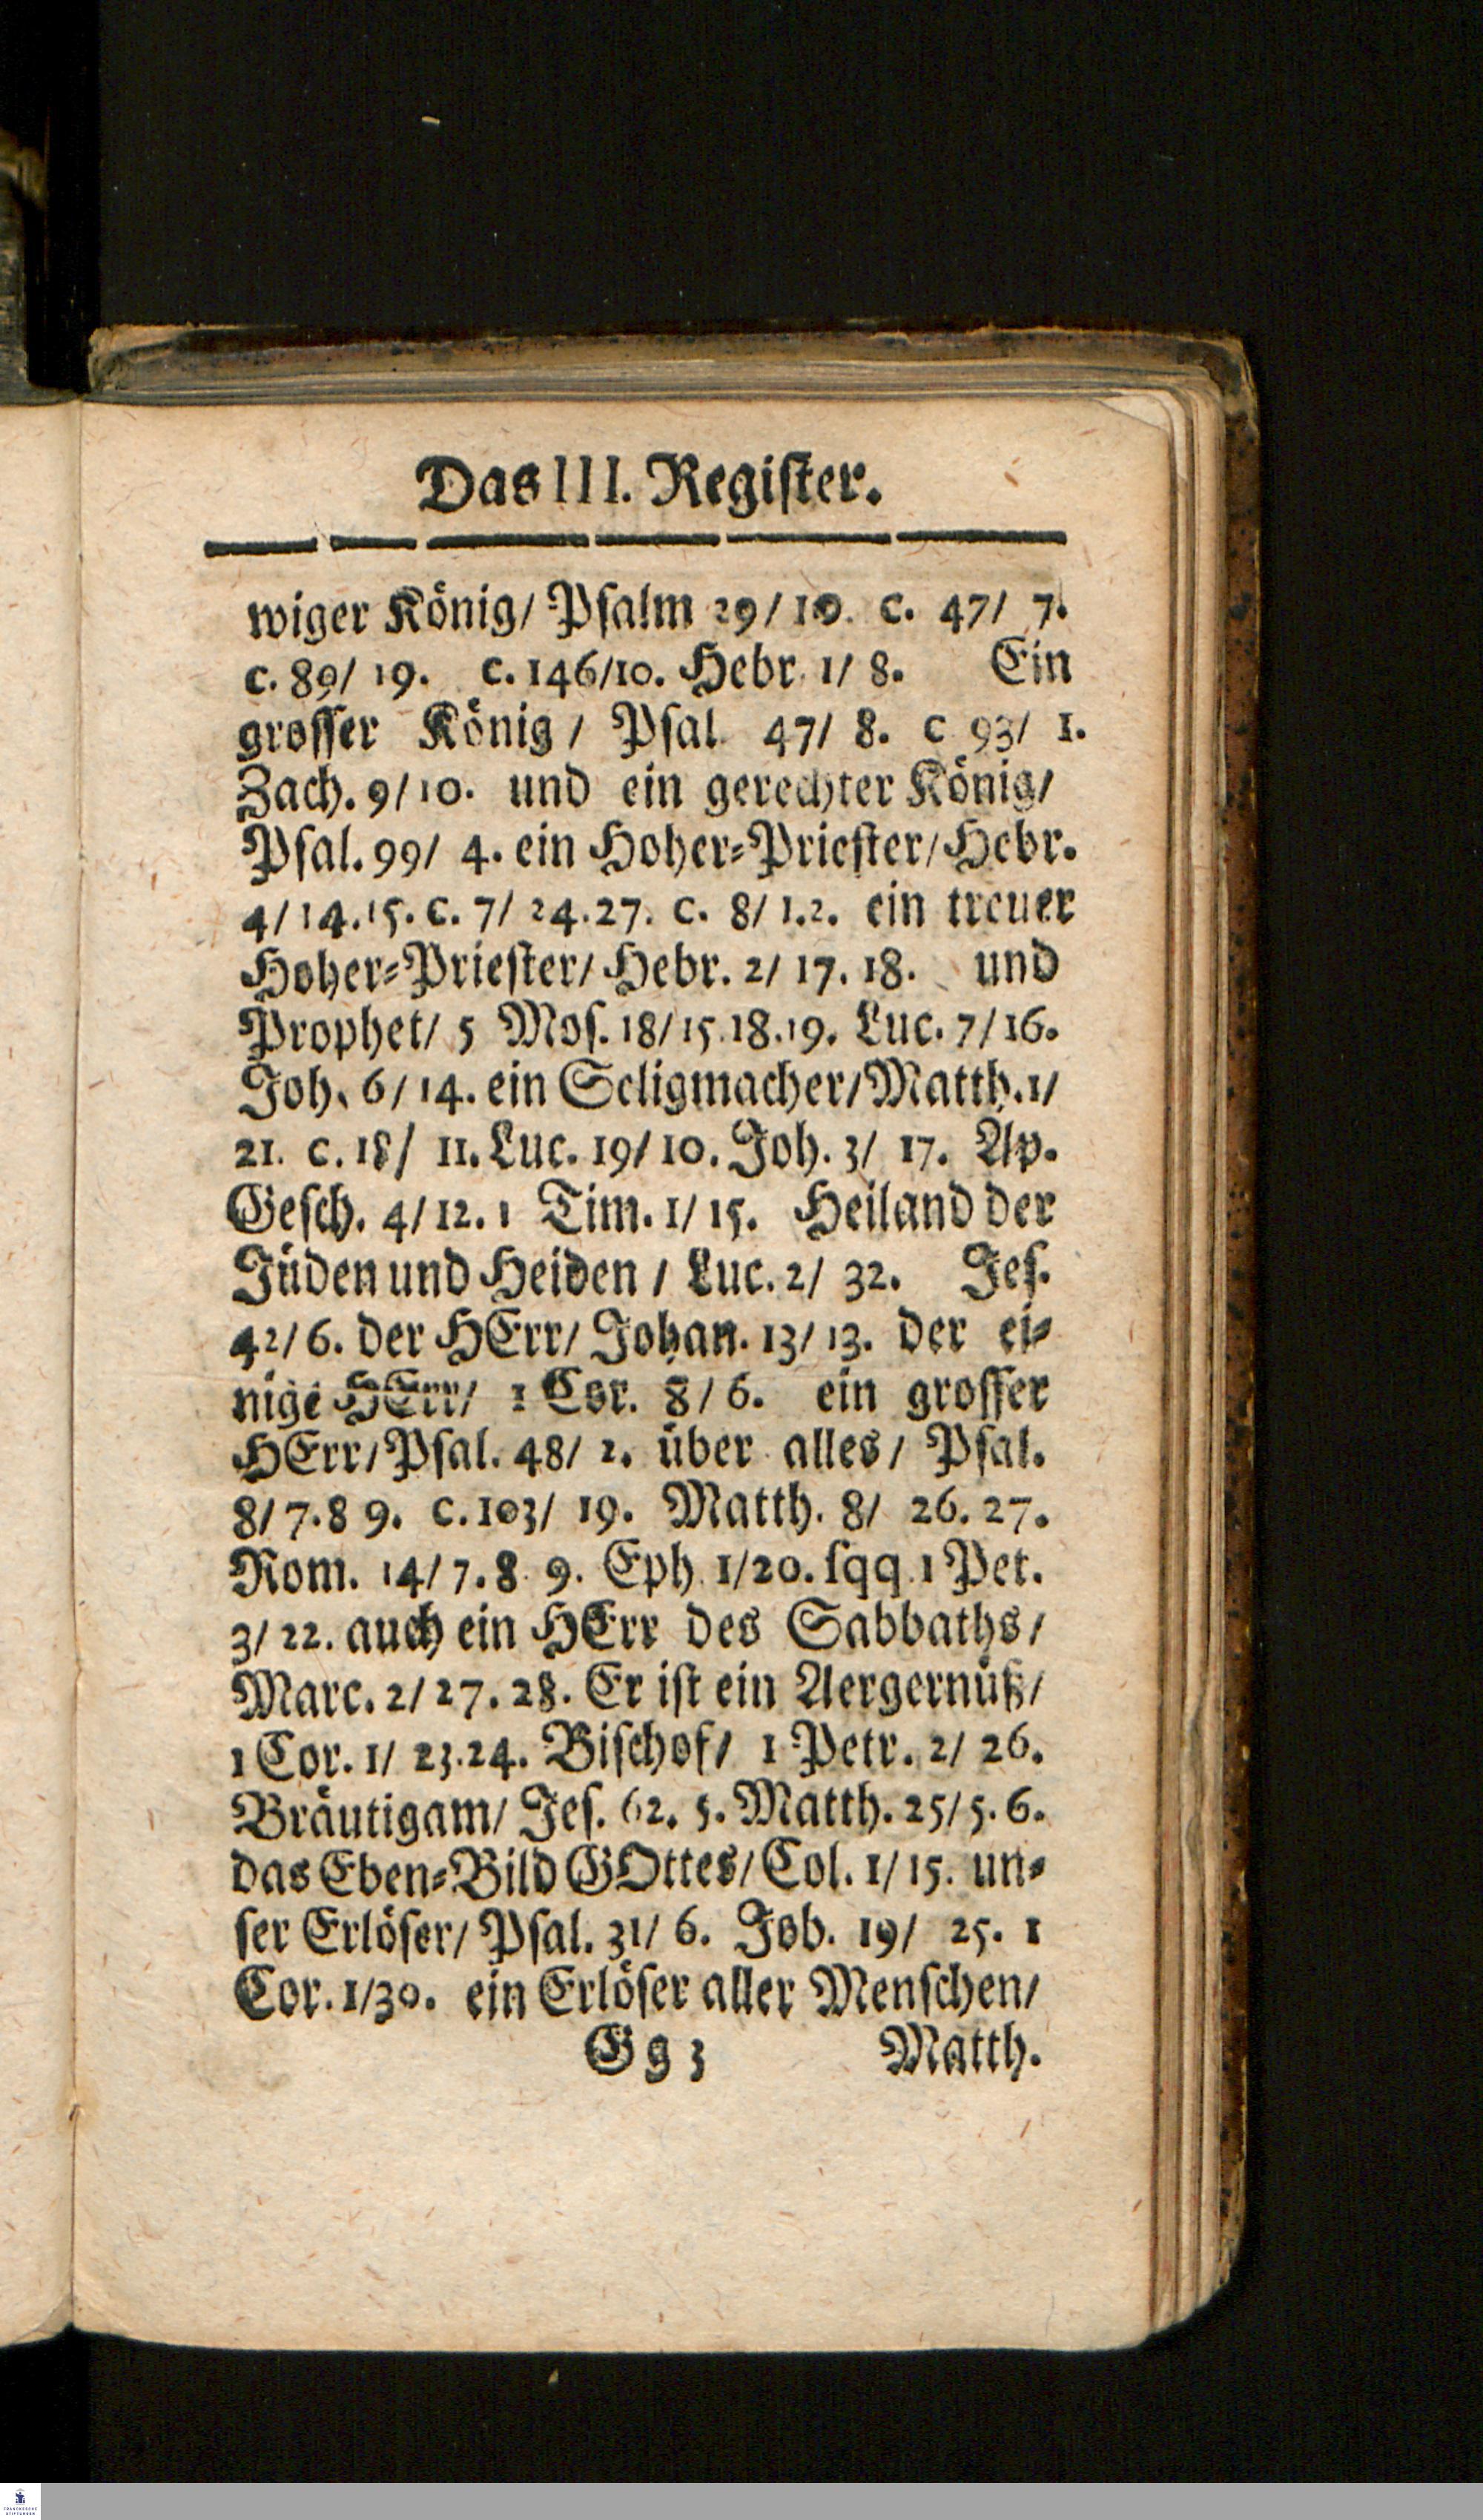 Das III. Register.
wiger König/ Psalm 29/10. c. 47/ 7.
c. 89/ 19. c. 146/10. Hebr. 1/ 8. Ein
grosser König / Psal. 47/ 8. c 93/ 1.
Zach. 9/10. und ein gerechter König/
Psal. 99/ 4. ein Hoher-Priester/Hebr.
4/14.15. c. 7/ 24.27. c. 8/ 1.2. ein treuer
Hoher-Priester/ Hebr. 2/ 17. 18. und
Prophet/ 5 Mos. 18/15.18.19. Luc. 7/16.
Joh. 6/14. ein Seligmacher/Matth. 1/
21. c. 18/ 11. Luc. 19/10. Joh. 3/ 17. Ap.
Gesch. 4/12. 1 Tim. 1/ 15. Heiland der
Jüden und Heiden / Luc. 2/ 32. Jes.
42/6. der HErr/ Johan. 13/13. der ei-
nige HErr/ 1 Cor. 8/6. ein grosser
HErr/Psal. 48/ 2. über alles/ Psal.
8/7.8 9. c. 103/ 19. Matth. 8/ 26. 27.
Rom. 14/7.8. 9. Eph. 1/20. sqq. 1 Pet.
3/22. auch ein HErr des Sabbaths/
Marc. 2/27.28. Er ist ein Aergernüß/
1 Cor. 1/ 23.24. Bischof/ 1 Petr. 2/ 26.
Bräutigam/ Jes. 62. 5. Matth. 25/5.6.
das Eben-Bild GOttes/Col. 1/15. un-
ser Erlöser/ Psal. 31/ 6. Job. 19/ 25. 1
Cor. 1/30. ein Erlöser aller Menschen/
Gg 3 Matth.
FRANCKESCHE
STIFTUNGEN